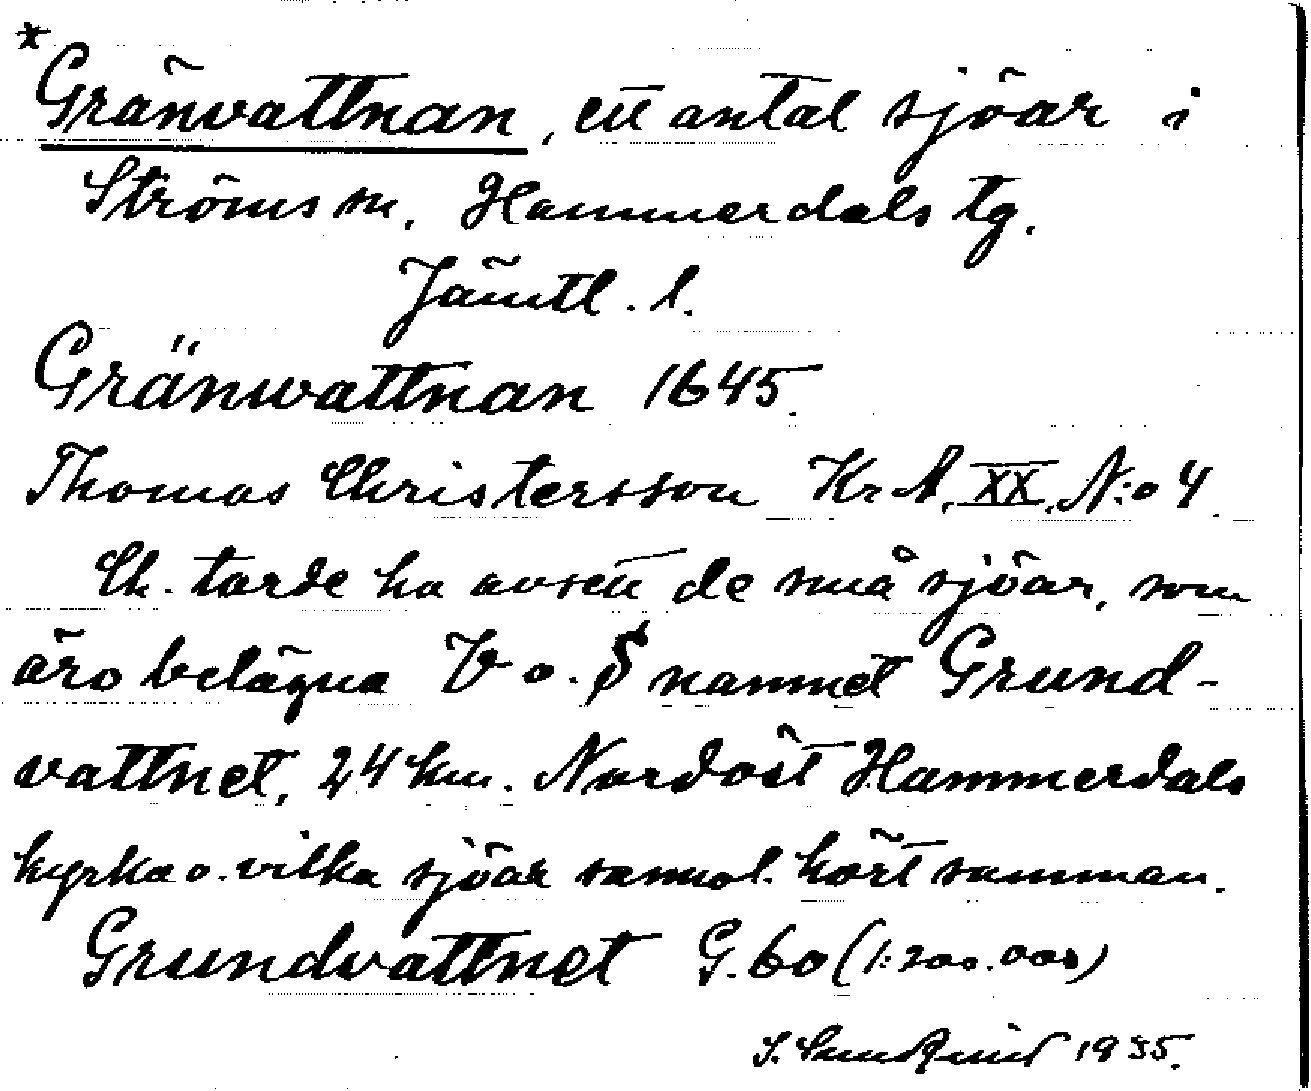 *Gränvattnan, ett antal sjöar i
Ströms sn, Hammerdals tg.
Jämtl. l.
Gränwattnan 1645.
Thomas Christersson Kr A, XX, N:o 4.
Ch. torde ha avsett de små sjöar, som
äro belägna V o. S namnet Grund-
vattnet, 24 km. Nordöst Hammerdals
kyrka o. vilka sjöar sannol. hört samman.
Grundvattnet G. 60 (1:200.000)
1935.